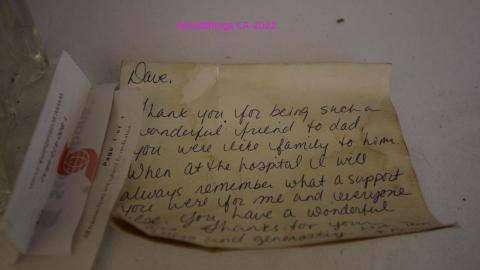 CA 2022
Dave,
Thank you for being such a
wonderful friend to dad,
you were like family to him.
When at the hospital I will
always remember what a support
you were for me and everyone
else. You have a wonderful
Thanks for your
and generosity
Page 1 of 1